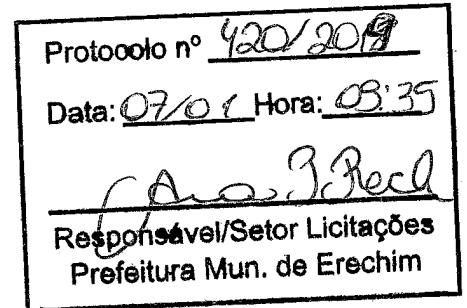 Protocolo nº 420/2019
Data: 07/01 Hora: 09:35
Ana P. Rech
Responsável/Setor Licitações
Prefeitura Mun. de Erechim